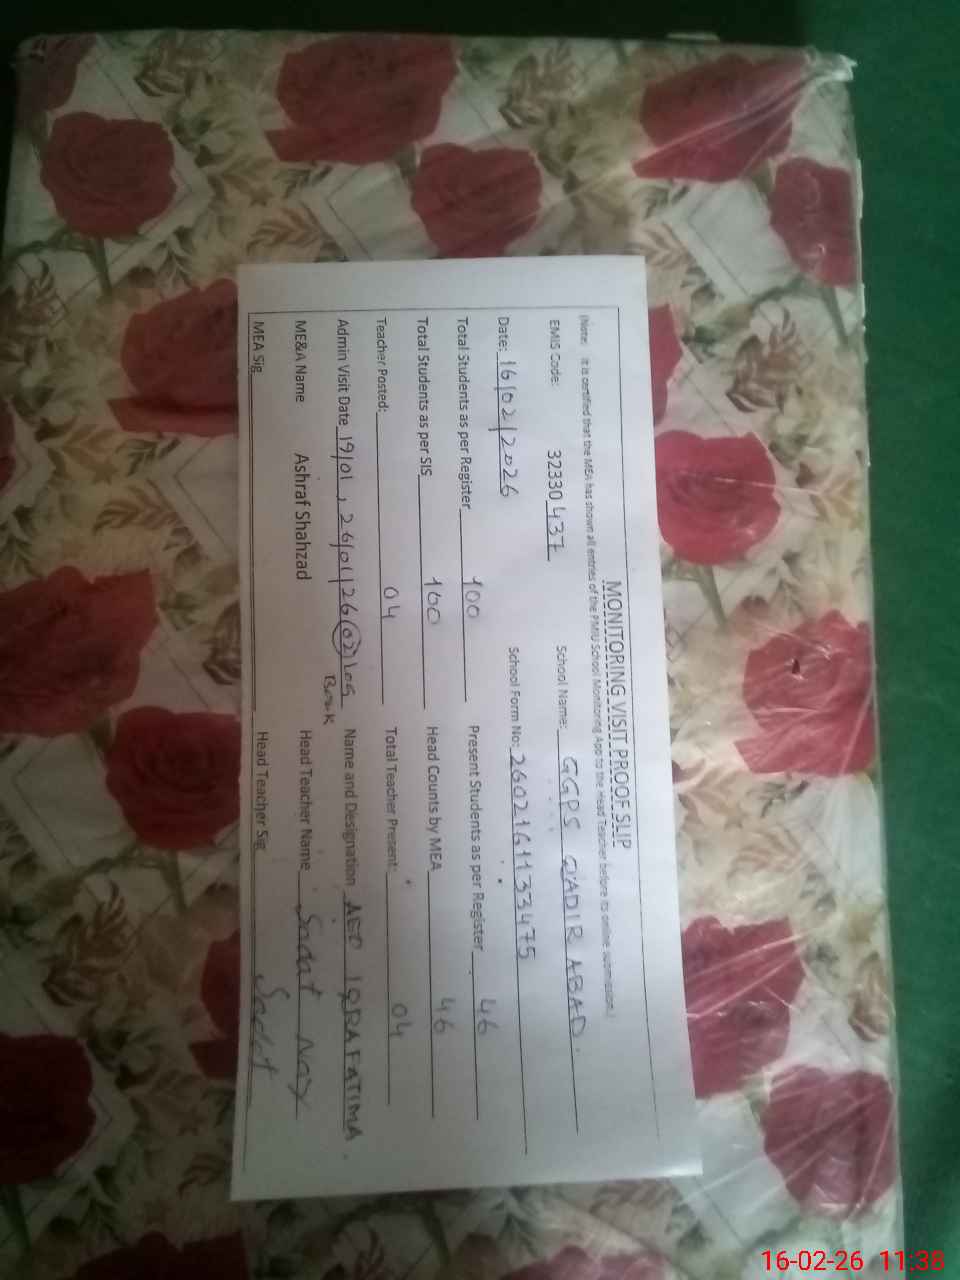 MONITORING VISIT PROOF SLIP
(Note: It is certified that the MEA has shown all entries of the PMIU School Monitoring App to the Head Teacher before its online submission.)
EMIS Code: 32330 437 School Name: GGPS QADIR ABAD.
Date: 16/02/2026 School Form No: 2602161133475
Total Students as per Register 100 Present Students as per Register 46
Total Students as per SIS 100 Head Counts by MEA 46
Teacher Posted: 04 Total Teacher Present: 04
Admin Visit Date 19/01, 26/01/26 (02) Name and Designation AEO IQRA FATIMA.
ME&A Name Ashraf Shahzad Head Teacher Name Sadat
MEA Sig Head Teacher Sig Sadat
16-02-26 11:38